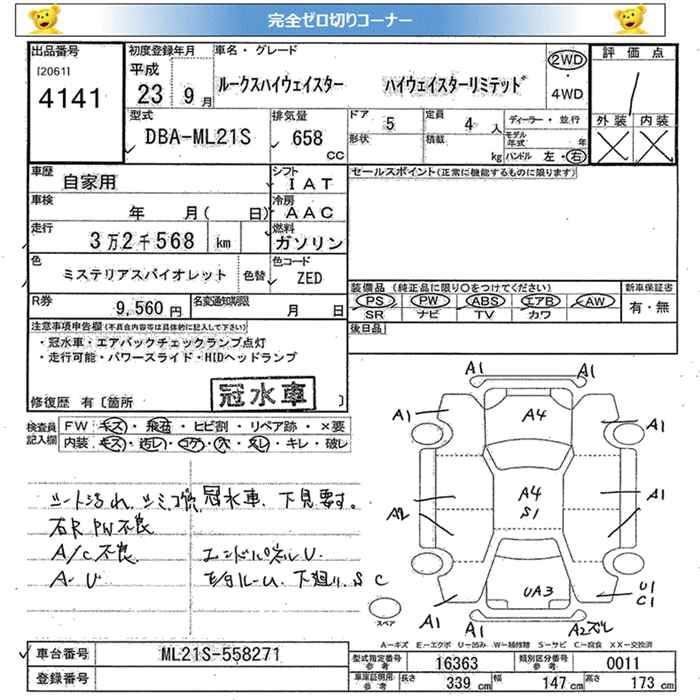 完全ゼロ切りコーナー
出品番号 初度登録年月 車名・グレード 2WD 評価点
[2061] 平成
4141 23 9月 ルークスハイウェイスター ハイウェイスターリミテッド ・ 4WD
型式 排気量 ドア 5 定員 4 人 ディーラー・並行 外装 内装
DBA-ML21S 658 cc 形状 積載 kg モデル年式 年 ハンドル 左・右
車歴 自家用 シフト IAT セールスポイント(正常に機能するものに限ります)
車検 年 月( 日) 冷房 AAC
走行 3万2千568 km 燃料 ガソリン
色 ミステリアスバイオレット 色替 色コード ZED
装備品(純正品に限り○をつけてください) 新車保証書
R券 9,560円 名変通知期限 月 日 PS PW ABS エアB AW 有・無
SR ナビ TV カワ
注意事項申告欄(不具合内容等は具体的に記入して下さい) 後日品
・冠水車・エアバックチェックランプ点灯
・走行可能・パワースライド・HIDヘッドランプ
冠水車
修復歴 有〔箇所 〕
検査員記入欄 FW キズ・飛石・ヒビ割・リペア跡・×要
内装 キズ・汚レ・コゲ・穴・スレ・キレ・破レ
A1 A1
A1 A4 A1
A4 S1
A2 A1
シートよごれ 冠水車 下見要す。
右R PW不良
A/C不良 エンドパネルU
A-U 下廻り SC
UA3
A1 A1 A2ズレ U1 C1
スペア
A-キズ E-エクボ U-凹み W-補修跡 S-サビ C-腐食 XX-交換済
車台番号 ML21S-558271
登録番号
型式指定番号 参考 16363 類別区分番号 参考 0011
車庫証明用 参考 長さ 339 cm 幅 147 cm 高さ 173 cm